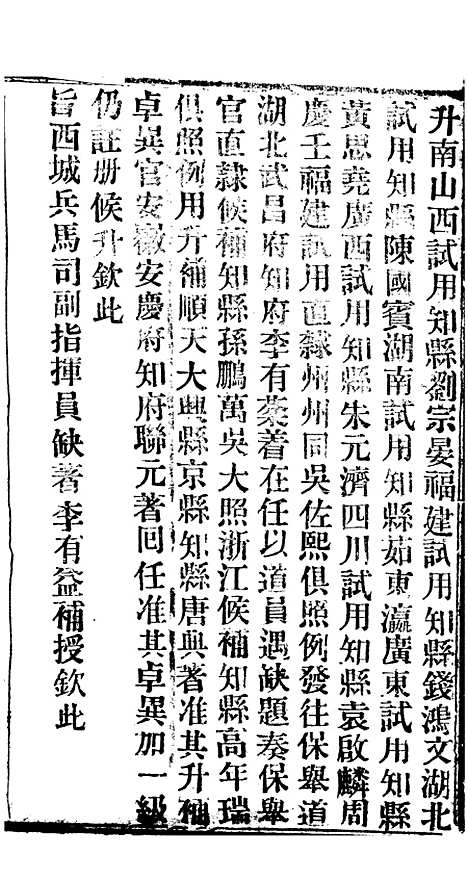 升南山西試用知縣劉宗晏福建試用知縣錢鴻文湖北
試用知縣陳國賓湖南試用知縣茹東瀛廣東試用知縣
黃思堯廣西試用知縣朱元濟四川試用知縣袁啟麟周
慶壬福建試用直隸州州同吳佐熙俱照例發往保舉道
湖北武昌府知府李有棻着在任以道員遇缺題奏保舉
官直隸候補知縣孫鵬萬吳大照浙江候補知縣高年瑞
俱照例用升補順天大興縣京縣知縣唐興著准其升補
卓異官安徽安慶府知府聯元著回任准其卓異加一級
仍註册候升欽此
旨西城兵馬司副指揮員缺著李有益補授欽此